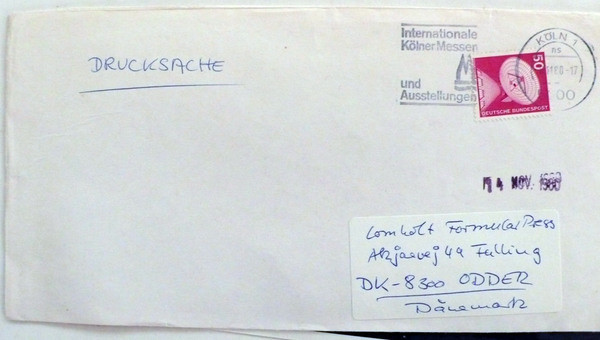 DRUCKSACHE
Internationale
Kölner Messen
und
Ausstellungen
KÖLN 1
ns
-17
00
50
DEUTSCHE BUNDESPOST
14 NOV. 1980
Lomholt Formular Press
Falling
DK-8300 ODDER
Dänemark